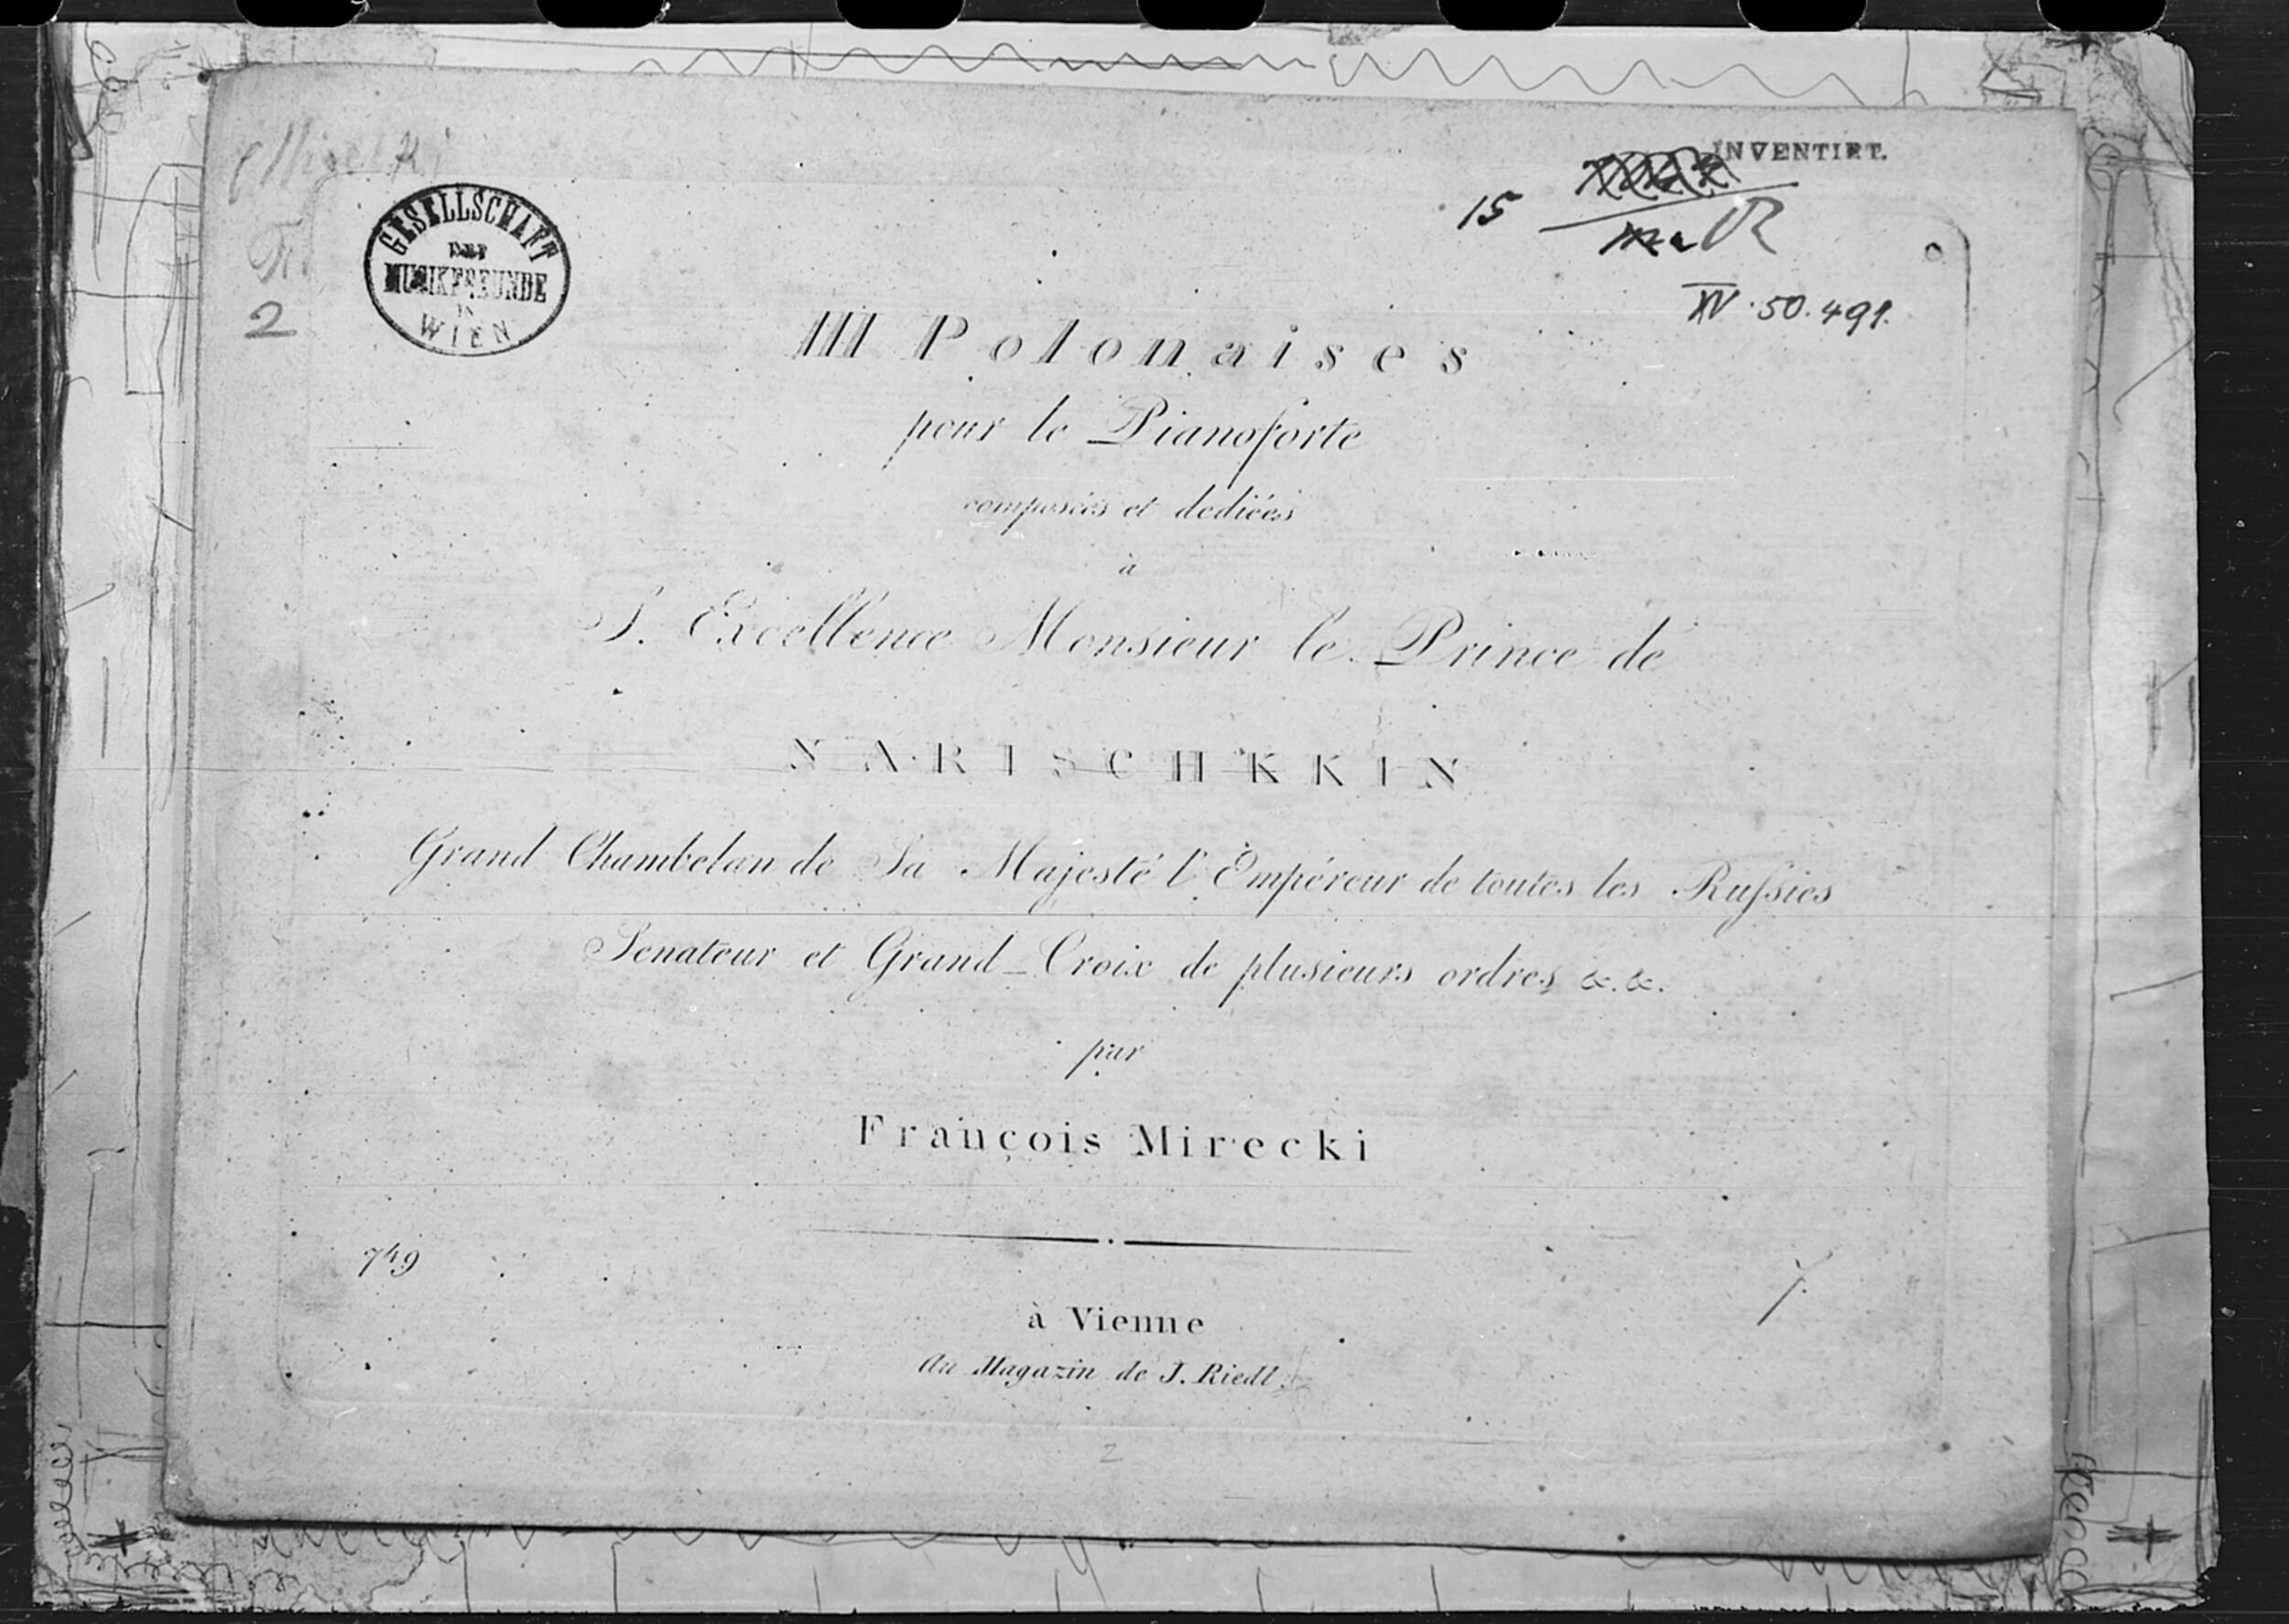 Mirecki
Fr.
2
GESELLSCHAFT
DER
MUSIKFREUNDE
IN
WIEN
INVENTIRT.
15
XV 50.491.
III Polonaises
pour le Pianoforte
composées et dediées
à
S. Excellence Monsieur le Prince de
NARISCHKKIN
Grand Chambelan de Sa Majesté l'Empéreur de toutes les Ruſsies
Senateur et Grand-Croix de plusieurs ordres &.&.
par
François Mirecki
749
7.
à Vienne
Au Magazin de J. Riedl.
2